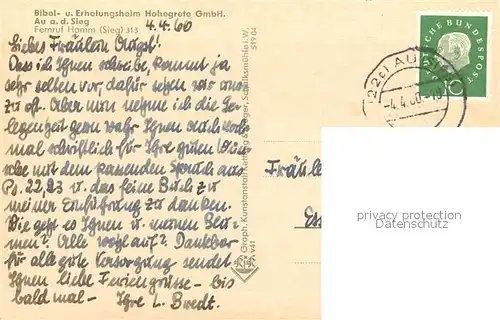 Bibel- u. Erholungsheim Hohegrete GmbH.
Au a. d. Sieg
Fernruf Hamm (Sieg) 313
4.4.60
Liebes Fräulein
Dass ich Ihnen schreibe, kommt ja
sehr selten vor, dafür sehen wir uns
zu oft. Aber nun nehme ich die Ge-
legenheit gern wahr Ihnen auch noch
mal schriftlich für Ihre guten Wün-
sche mit dem passenden Spruch aus
Ps. 22,23 u. das feine Buch zu
meiner Einführung zu danken.
Wie geht es Ihnen u. meinen Blu-
men? Alle wohl auf? Dankbar
für alle gute Versorgung sendet
Ihnen liebe Feriengrüsse - bis
bald mal - Ihre L. Bredt.
Graph. Kunstanstalt Schalksmühle i. W.
5904
V41
Fräule
Ess
DEUTSCHE BUNDESPOST
10
(22c) AU
-4.4.60
privacy protection
watermark